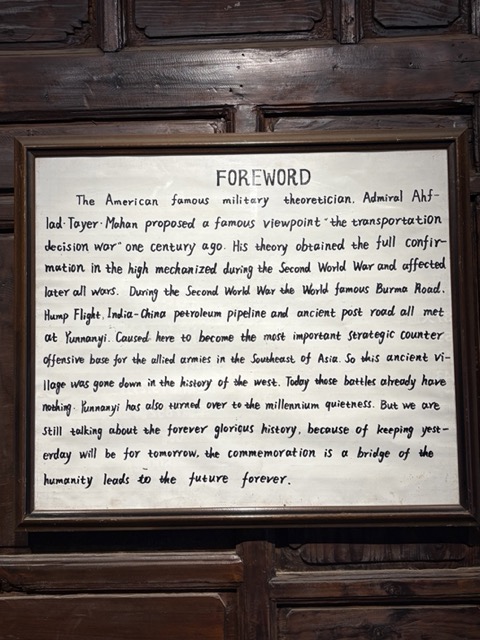 FOREWORD
The American famous military theoretician, Admiral Ahf-
lad·Tayer·Mahan proposed a famous viewpoint "the transportation
decision war" one century ago. His theory obtained the full confir-
mation in the high mechanized during the Second World War and affected
later all wars. During the Second World War the World famous Burma Road,
Hump Flight, India-China petroleum pipeline and ancient post road all met
at Yunnanyi. Caused here to become the most important strategic counter
offensive base for the allied armies in the Southeast of Asia. So this ancient vi-
llage was gone down in the history of the west. Today those battles already have
nothing. Yunnanyi has also turned over to the millennium quietness. But we are
still talking about the forever glorious history, because of keeping yest-
erday will be for tomorrow, the commemoration is a bridge of the
humanity leads to the future forever.